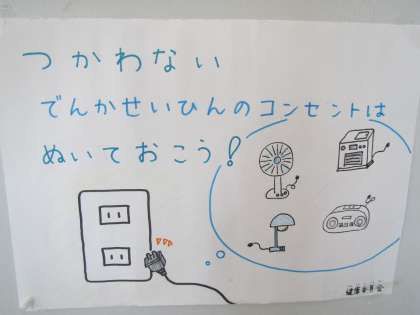 つかわない
でんかせいひんのコンセントは
ぬいておこう!
健康委員会